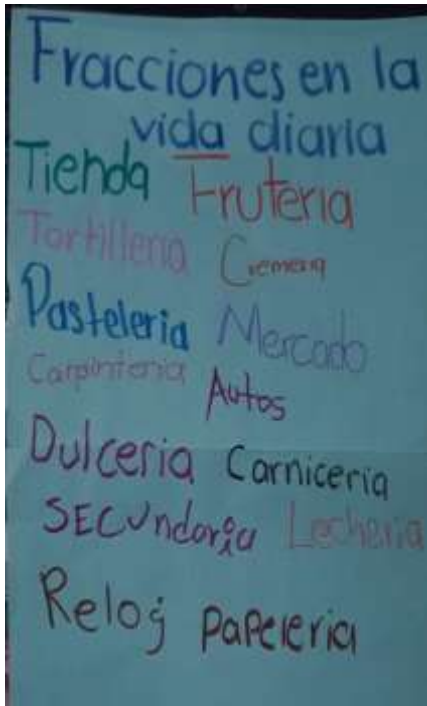 Fracciones en la
vida diaria
Tienda Fruteria
Tortilleria Cremeria
Pasteleria Mercado
Carpinteria Autos
Dulceria Carniceria
SECUndaria Lecheria
Reloj papeleria